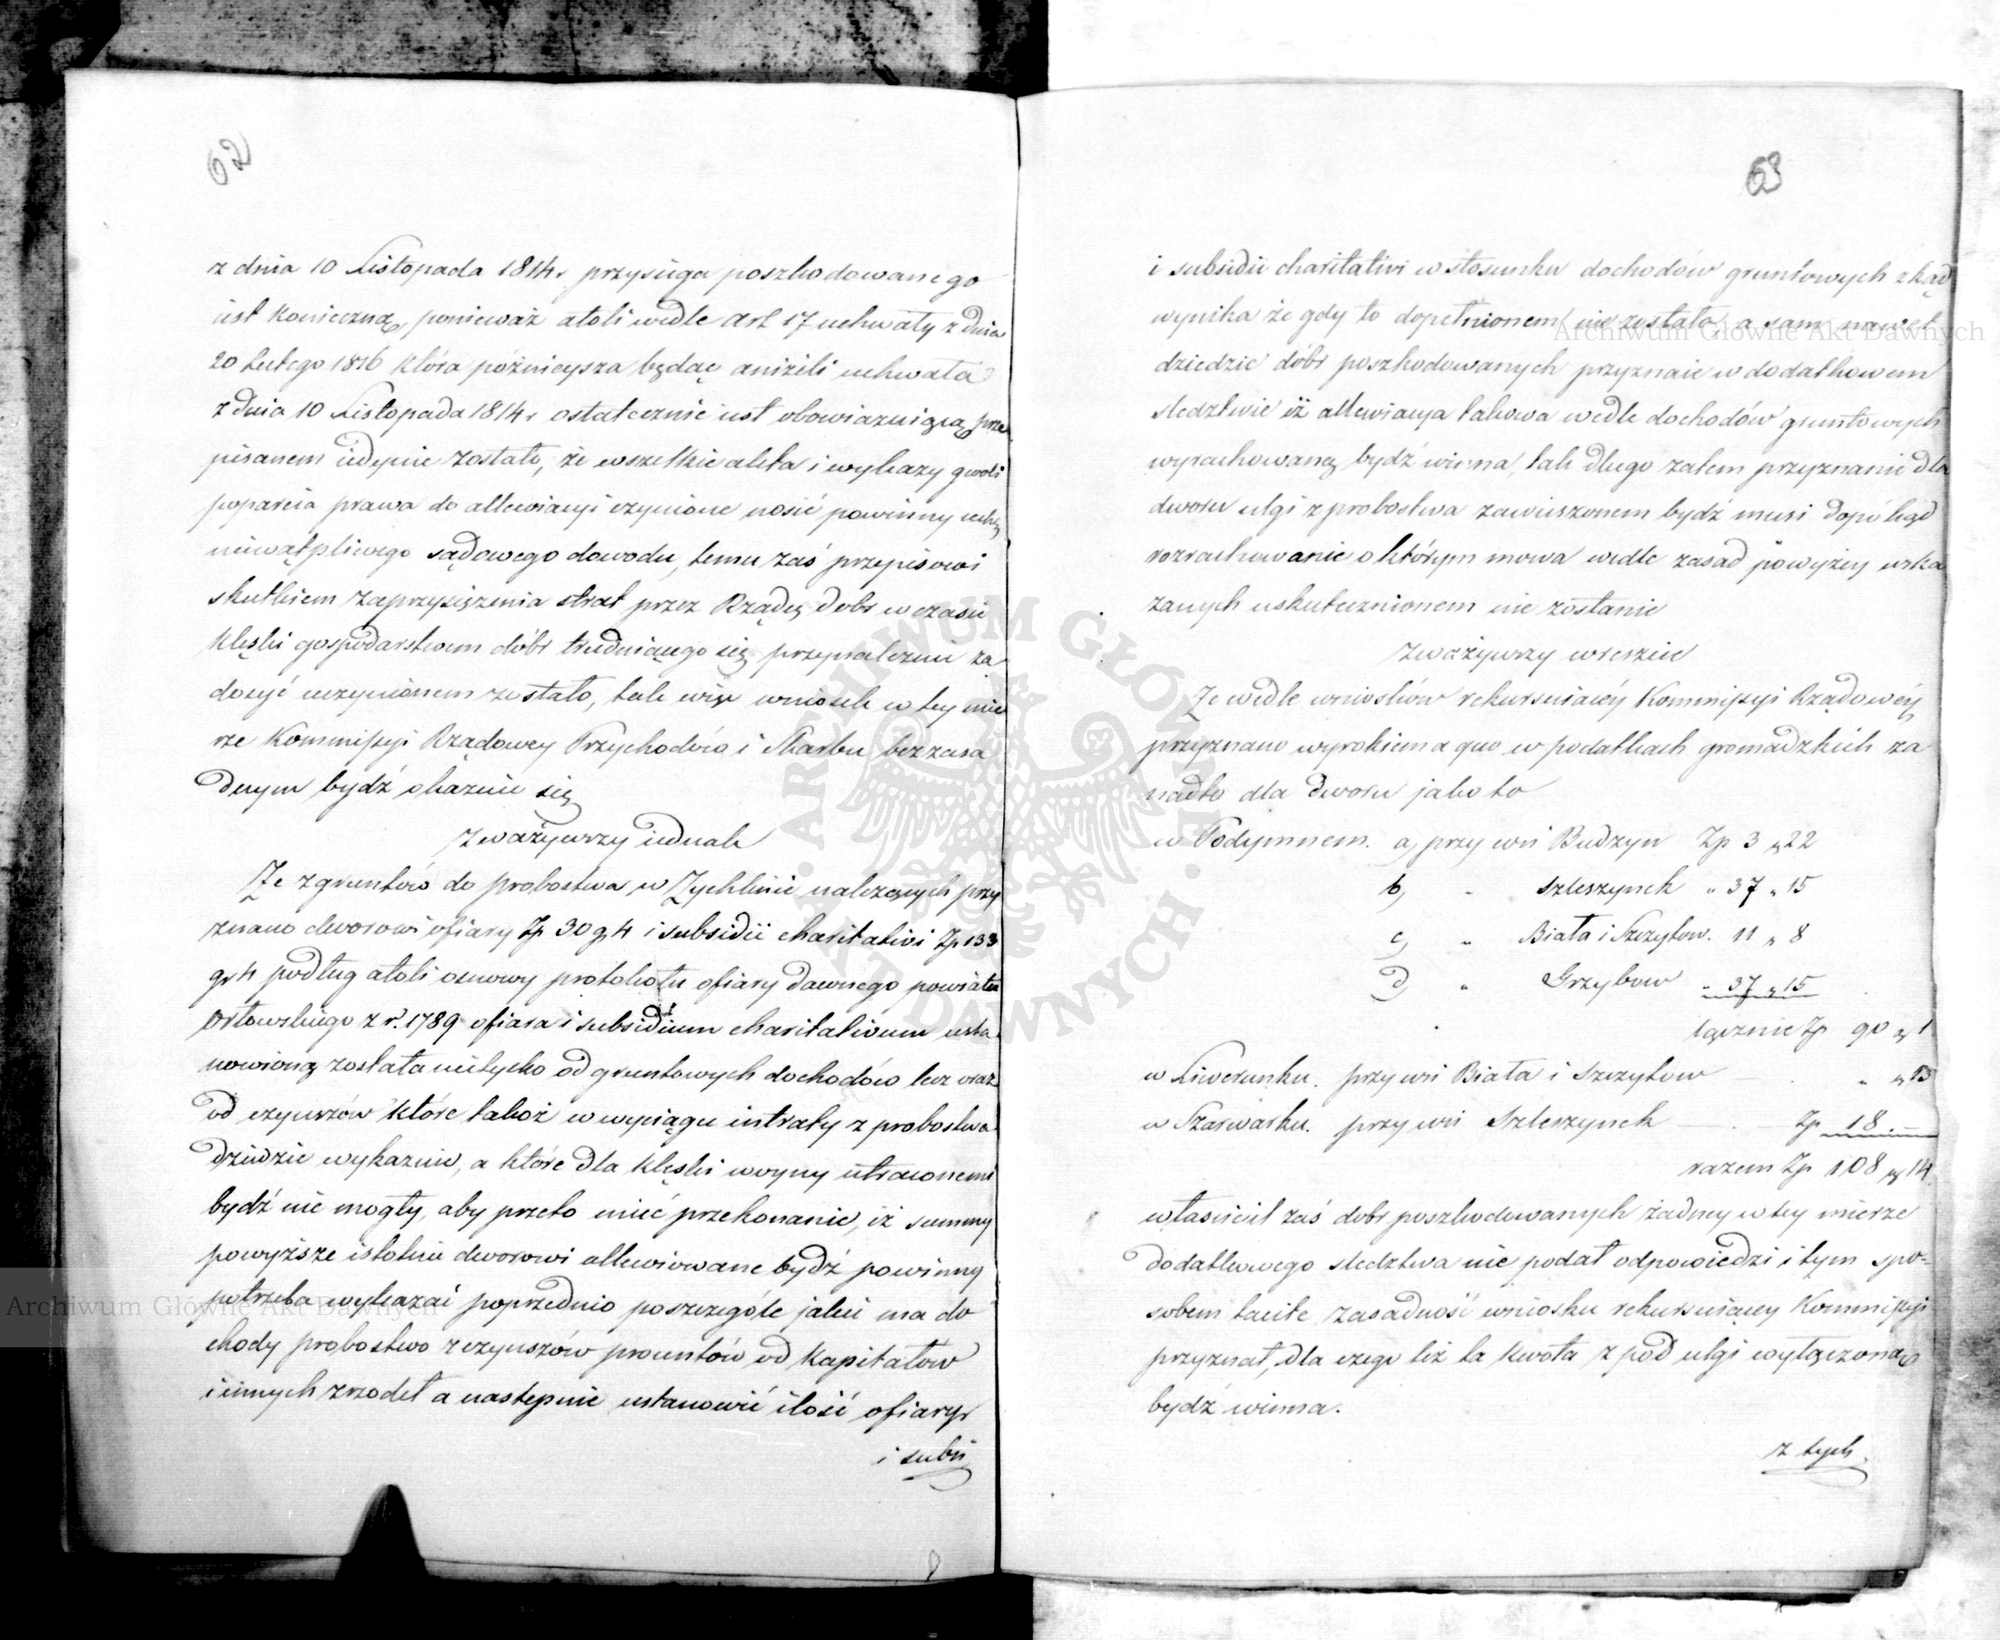 62
z dnia 10 Listopada 1814 r przysięga poszkodowanego
iest konieczną, ponieważ atoli wedle art 17 uchwały z dnia
20 Lutego 1816 która późnieysza będąc aniżeli uchwała
z dnia 10 Listopada 1814 r ostatecznie iest obowiązuiącą prze
pisanem iedynie zostało, że wszelkie akta i wykazy gwoli
poparcia prawa do allewiacyi czynione nosić powinny cechę
niewątpliwego sądowego dowodu, temu zaś przepisowi
skutkiem zaprzysiężenia strat przez Rządcę dobr w czasie
klęski gospodarstwem dóbr trudniącego się przynależnie za
dosyć uczynionem zostało, tak więc wniosek w tey mie
rze Kommissyi Rządowey Przychodów i Skarbu bezzasa
dnym bydź okazuie się
Zważywszy iednak
Że z gruntów do probostwa w Żychlinie należących przy
znano dworowi ofiary Zp 30 g 4 i subsidii charitativi Zp 133
g 4 podług atoli osnowy protokołu ofiary dawnego powiatu
Orłowskiego z r. 1789 ofiara i subsidium charitativum usta
nowioną została nietylko od gruntowych dochodów lecz oraz
od czynszów które takoż w wyciągu intraty z probostwa
dziedzic wykazuie, a które dla klęski woyny utraconemi
bydź nie mogły, aby przeto mieć przekonanie, iż summy
powyższe istotnie dworowi allewiowane bydź powinny
potrzeba wykazać poprzednio poszczególe jakie ma do
chody probostwo z czynszów procentów od kapitałów
i innych zrzodeł a następnie ustanowić ilość ofiary
i subsi
63
i subsidii charitativi w stosunku dochodów gruntowych zkąd
wynika że gdy to dopełnionem nie zostało, a sam nawet
dziedzic dóbr poszkodowanych przyznaie w dodatkowem
śledztwie iż allewiacya takowa wedle dochodów gruntowych
wyrachowaną bydź winna, tak długo zatem przyznanie dla
dworu ulgi z probostwa zawieszonem bydź musi dopókąd
rozrachowanie o którym mowa wedle zasad powyżey wska
zanych uskutecznionem nie zostanie
Zważywszy wreszcie
Że wedle wniosków rekursuiącéy Kommissyi Rządowéy
przyznano wyrokiem a quo w podatkach gromadzkich za
nadto dla dworu jako to
w Podymnem. a, przy wsi Budzyn Zp 3 g 22
b, " Szleszynek " 37 " 15
c, " Biała i Szczytow. 11 " 8
d, " Grzybow " 37 g 15
łącznie Zp 90 g 1
w Liwerunku. przy wsi Biała i Szczytow " g 13
w Szarwarku. przy wsi Szleszynek Zp 18 . —
razem Zp 108 g 14.
właściciel zaś dobr poszkodowanych żadney w tey mierze
dodatkowego śledztwa nie podał odpowiedzi i tym spo-
sobem tacite zasadność wniosku rekursuiącey Kommissyi
przyznał, dla czego też ta kwota z pod ulgi wyłączoną
bydź winna.
z tych
ARCHIWUM GŁÓWNE AKT DAWNYCH
Archiwum Główne Akt Dawnych
Archiwum Główne Akt Dawnych